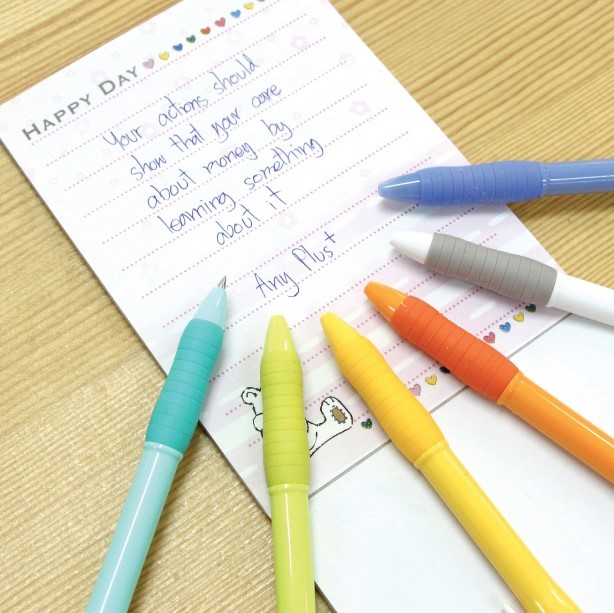 HAPPY DAY
Your actions should
show that your care
about money by
learning something
about it
Any Plus+